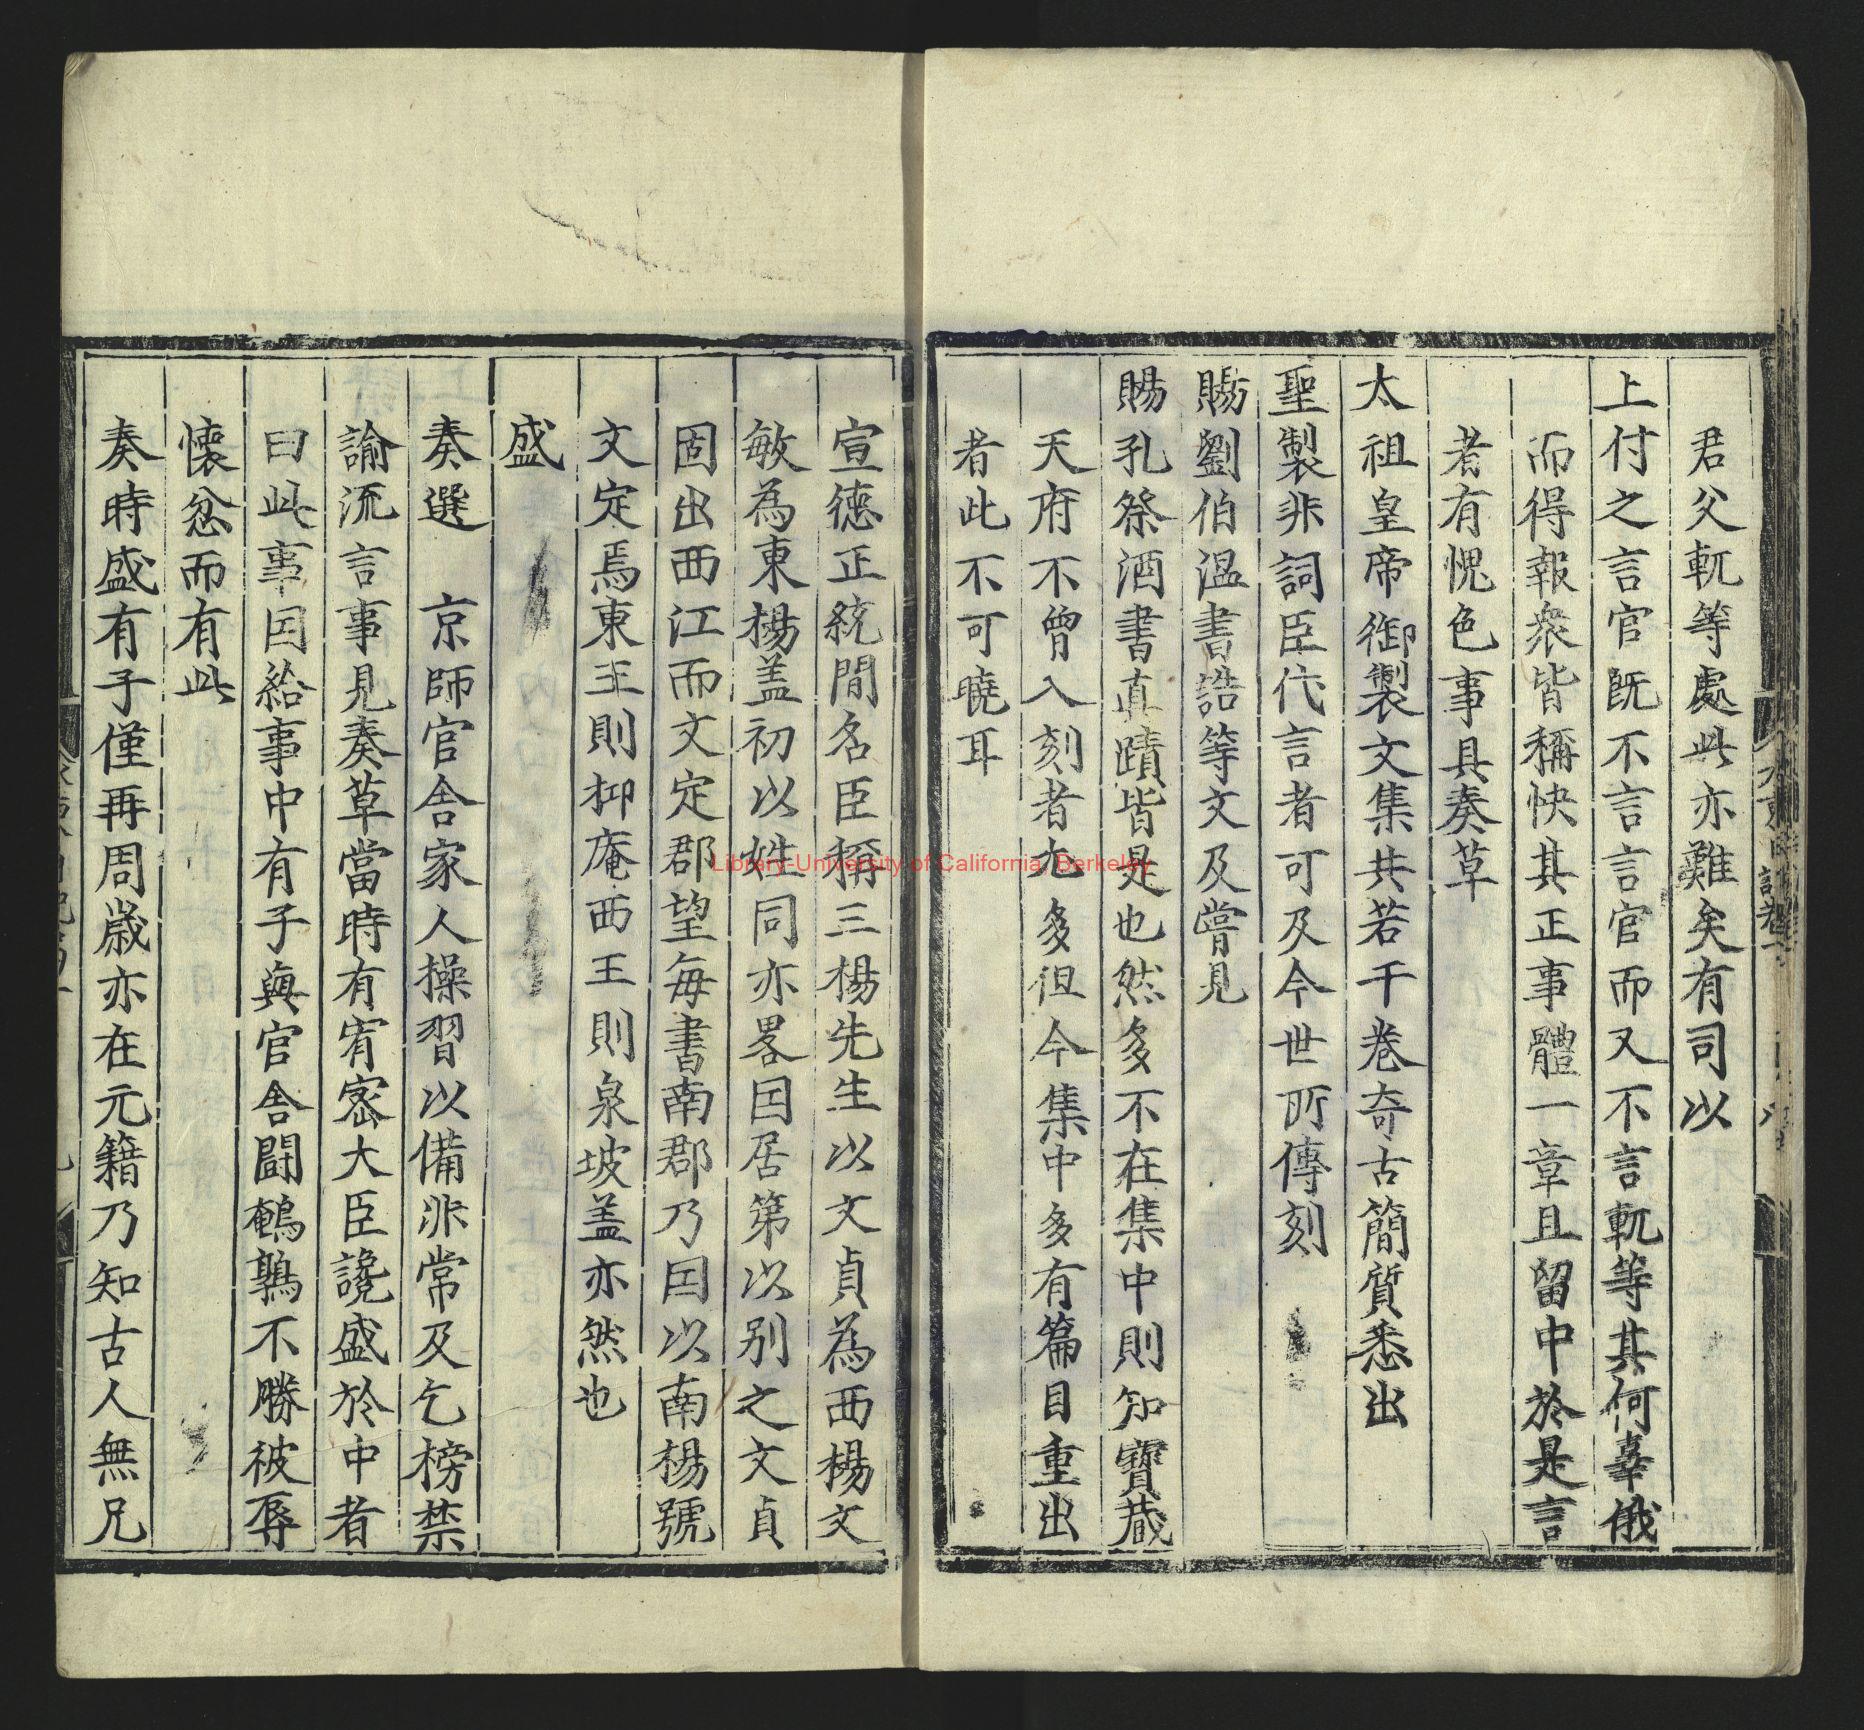 君父軏等處此亦難矣有司以
上付之言官既不言言官而又不言軏等其何辜俄
而得報衆皆稱快其正事體一章且留中於是言
者有愧色事具奏草
太祖皇帝御製文集共若干卷奇古簡質悉出
聖製非詞臣代言者可及今世所傳刻
賜劉伯溫書誥等文及嘗見
賜孔祭酒書真蹟皆是也然多不在集中則知寶藏
天府不曾入刻者尤多但今集中多有篇目重出
者此不可曉耳
宣德正統間名臣稱三楊先生以文貞為西楊文
敏為東楊盖初以姓同亦畧因居第以別之文貞
固出西江而文定郡望每書南郡乃因以南楊號
文定焉東王則抑庵西王則泉坡盖亦然也
盛
奏選 京師官舍家人操習以備非常及乞榜禁
諭流言事見奏草當時有宥密大臣讒盛於中者
曰此事因給事中有子與官舍鬪鵪鶉不勝被辱
懷忿而有此
奏時盛有子僅再周歲亦在元籍乃知古人無兄
Library-University of California, Berkeley